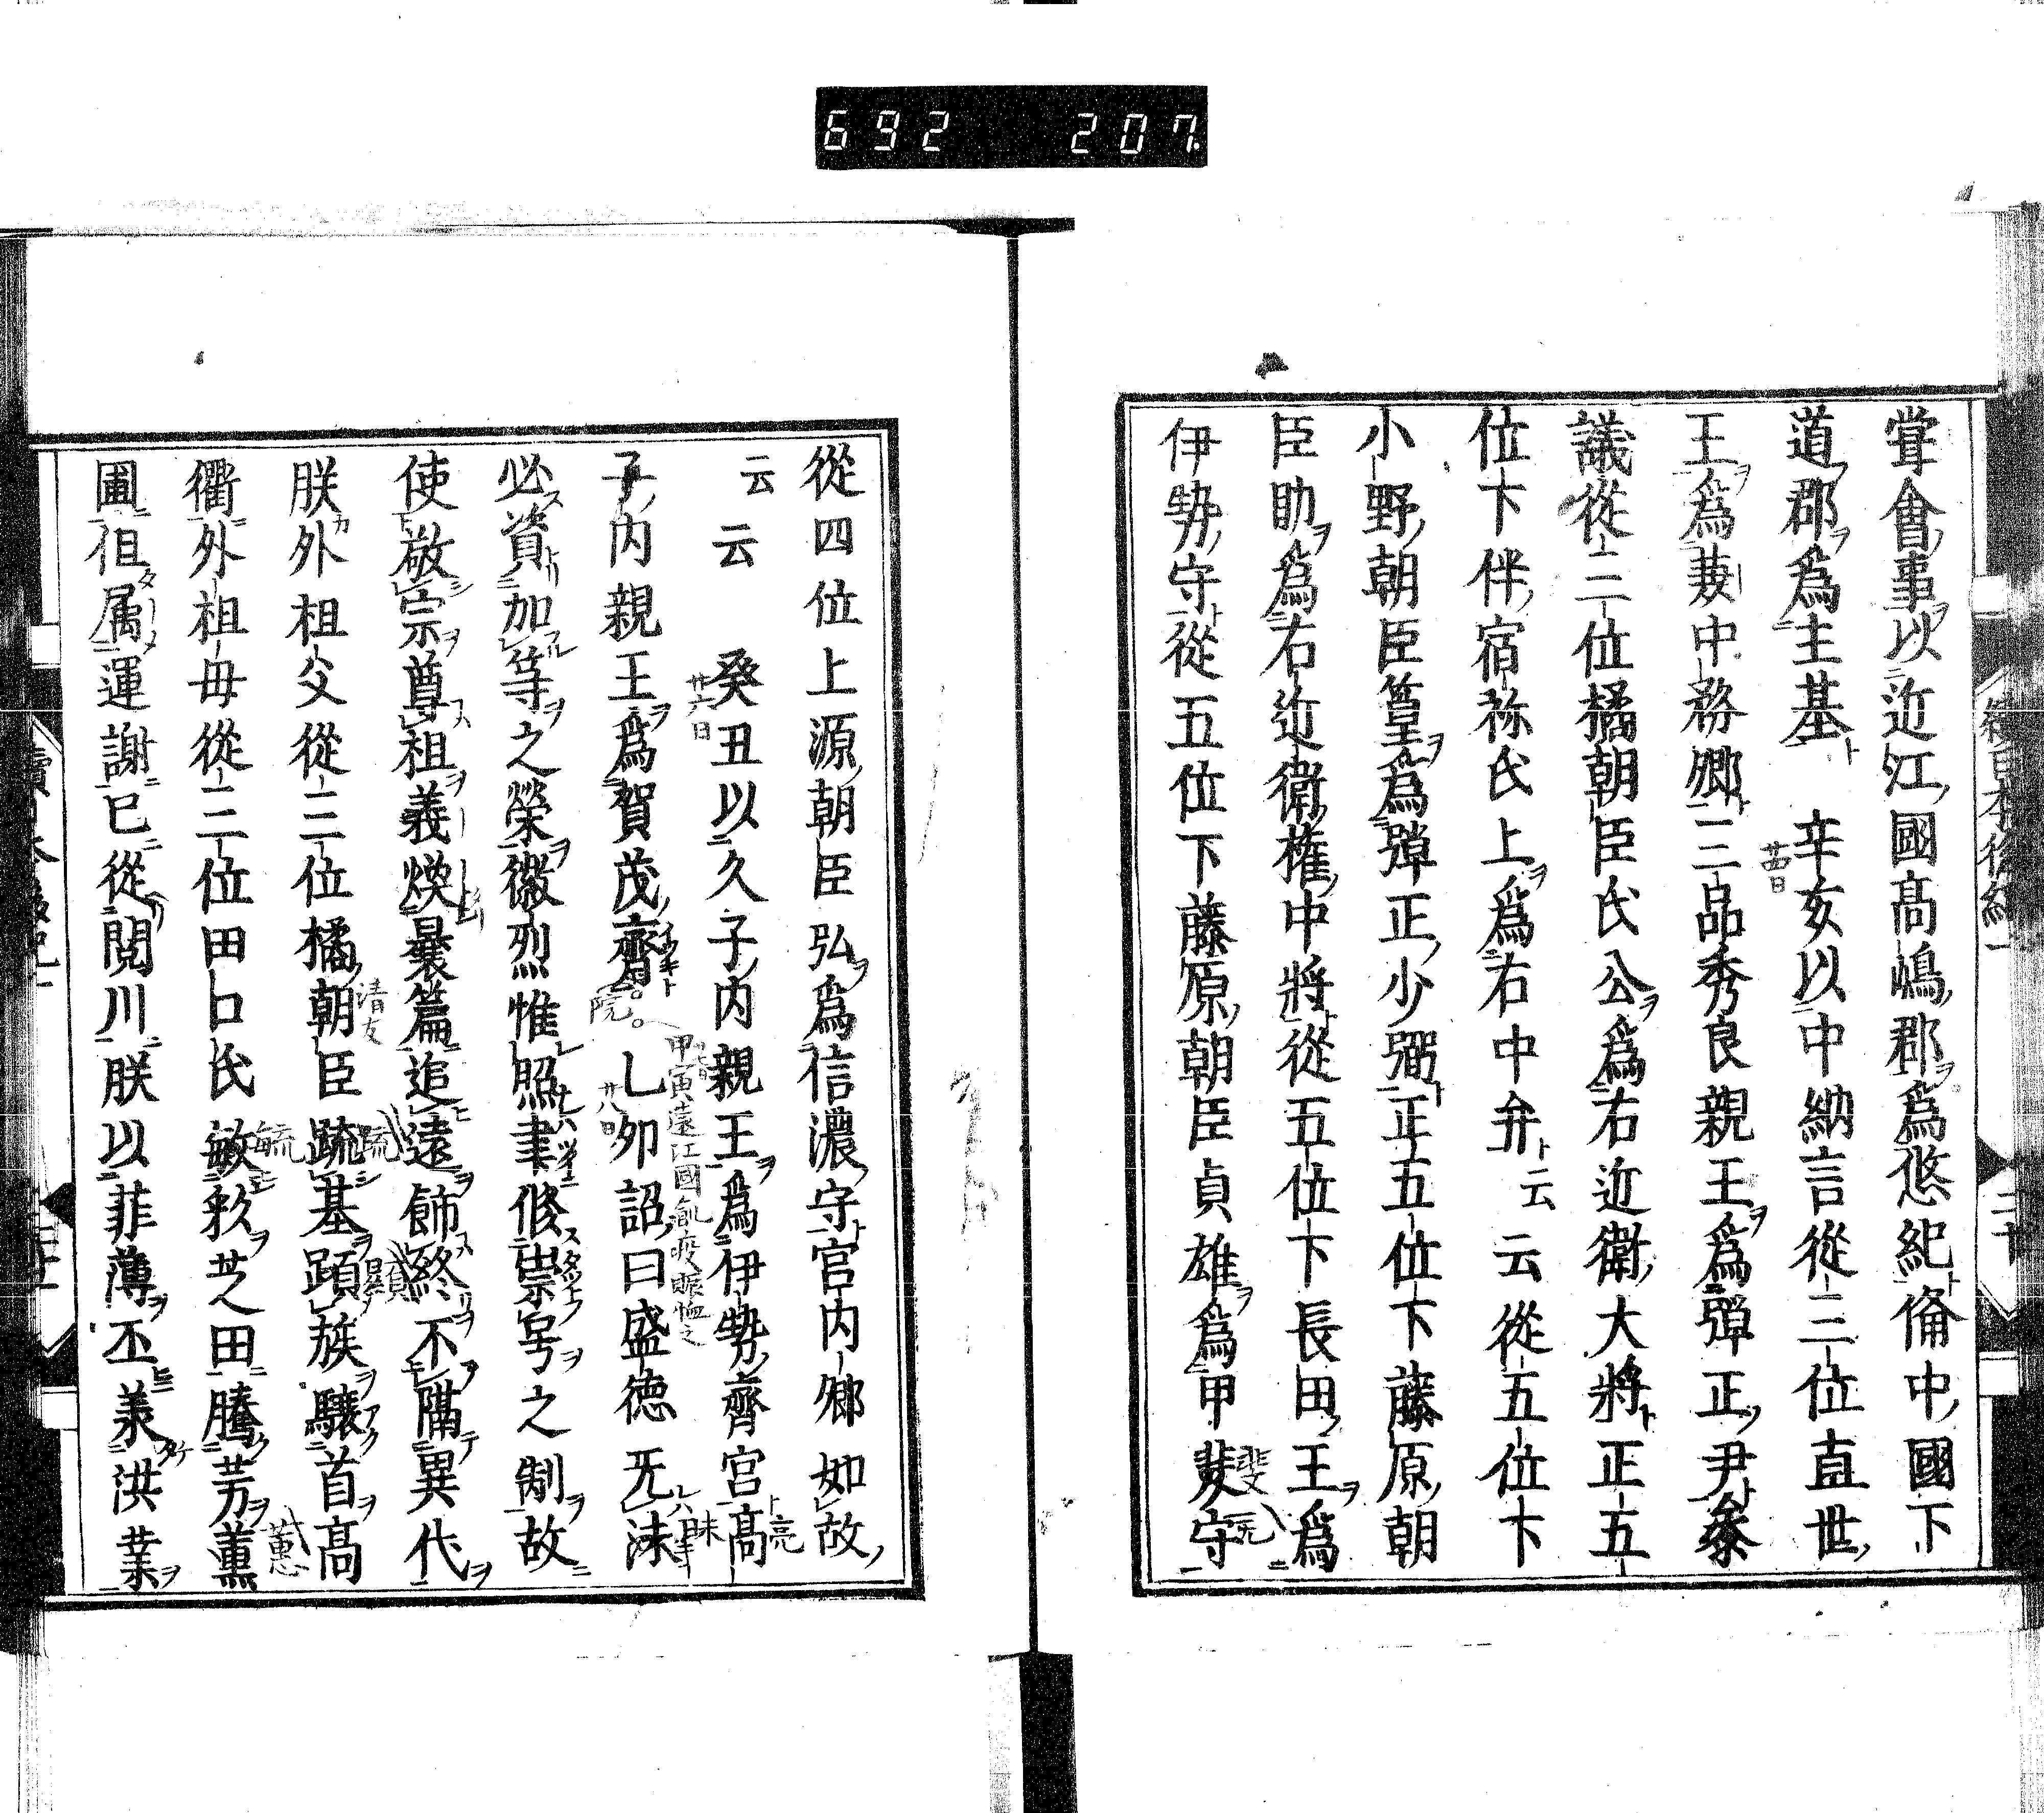 692 207
甞會事以近江國髙嶋郡爲悠紀備中國下
道郡爲主基 辛亥以中納言從三位直世
王爲兼中務卿三品秀良親王爲彈正尹叅
議從三位橘朝臣氏公爲右近衛大將正五
位下伴宿祢氏上爲右中弁云云從五位下
小野朝臣篁爲彈正少弼正五位下藤原朝
臣助爲右近衛權中將從五位下長田王爲
伊勢守從五位下藤原朝臣貞雄爲甲斐守
從四位上源朝臣弘爲信濃守官内卿如故
云云 癸丑以久子内親王爲伊勢齊宮髙
子内親王爲賀茂齊 乙卯詔曰盛徳旡沫
必資加等之榮徽烈惟照聿修崇号之制故
使敬宗尊祖義煥曩篇追遠飾終不隔異代
朕外祖父從三位橘朝臣䟽基蹟族驤首髙
衢外祖母從三位田口氏敏款芝田騰芳薫
圃徂属運謝已從閲川朕以菲薄丕羕洪業
廿四日
廿六日
廿八日
院
甲寅遠江國飢疫賑恤之
清友
毓
蕙
亮
沬
斐